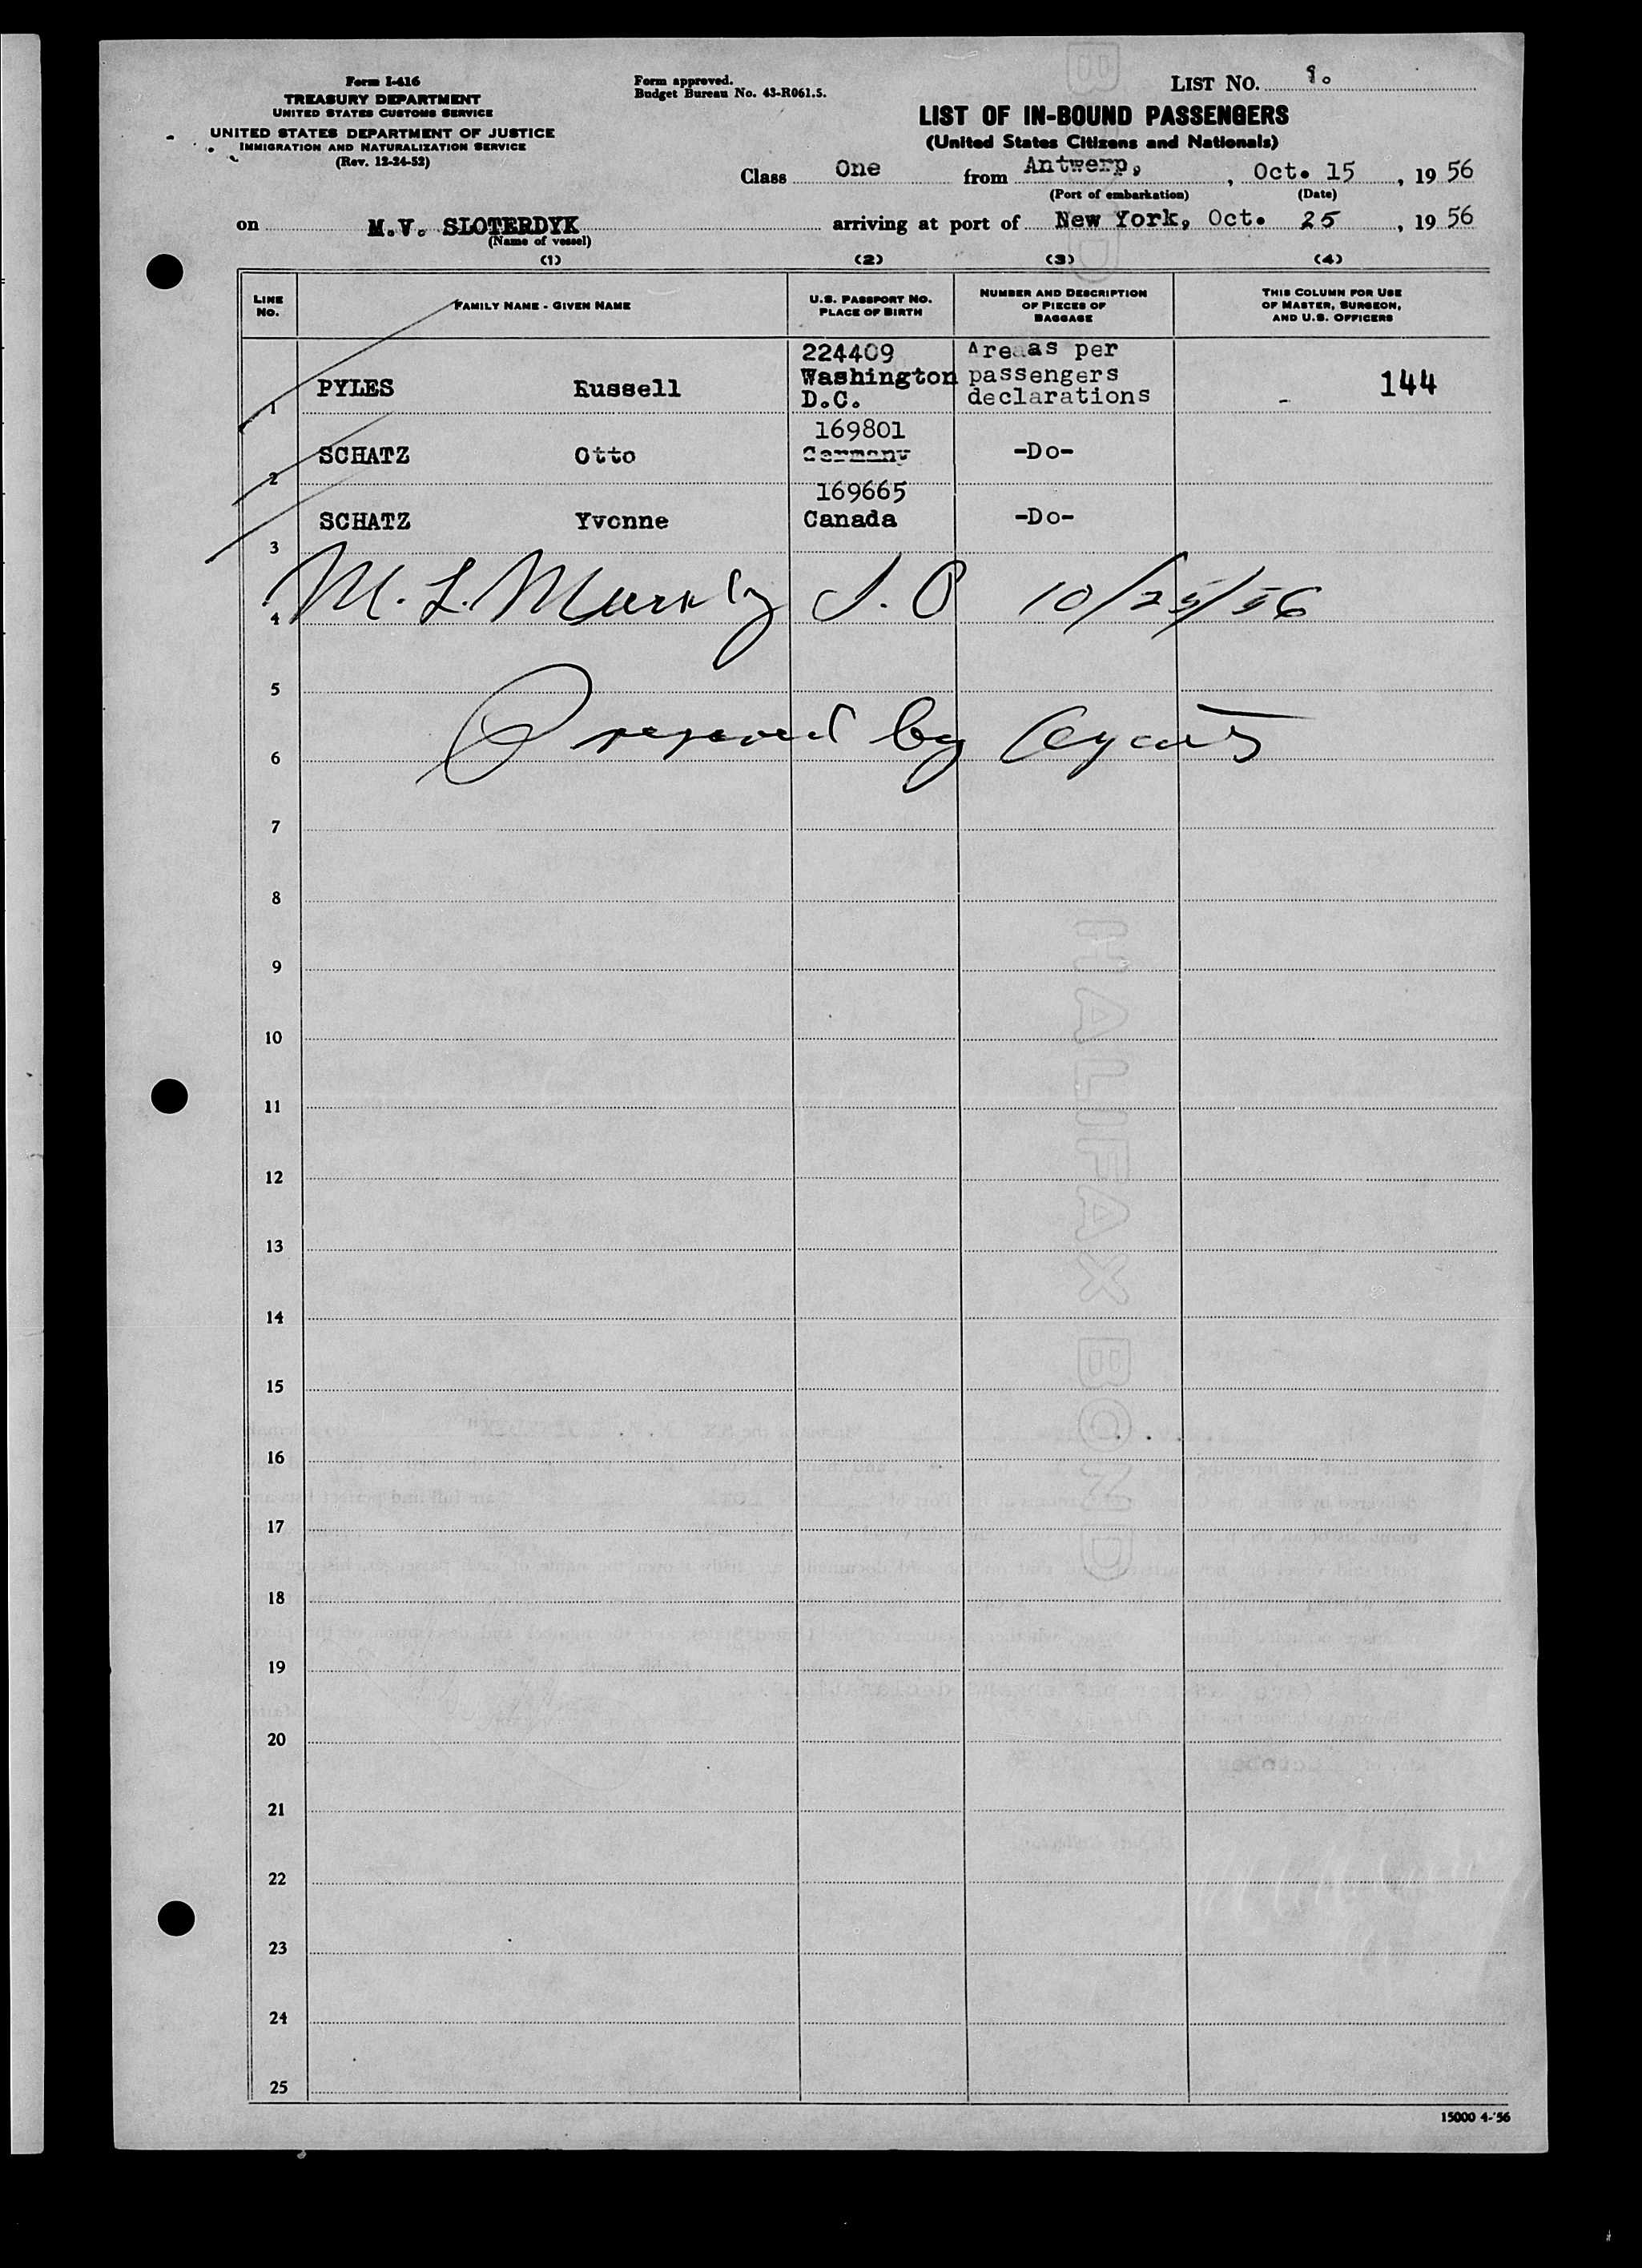 Form I-416
TREASURY DEPARTMENT
UNITED STATES CUSTOMS SERVICE
UNITED STATES DEPARTMENT OF JUSTICE
IMMIGRATION AND NATURALIZATION SERVICE
(Rev. 12-24-52)
Form approved.
Budget Bureau No. 43-R061.5.
LIST NO.
LIST OF IN-BOUND PASSENGERS
(United States Citizens and Nationals)
Class One from Antwerp, , Oct. 15 , 19 56
(Port of embarkation) (Date)
on M.V. SLOTERDYK arriving at port of New York, Oct. 25 , 19 56
(Name of vessel)
(1) (2) (3) (4)
LINE NO. FAMILY NAME - GIVEN NAME U.S. PASSPORT NO. PLACE OF BIRTH NUMBER AND DESCRIPTION OF PIECES OF BAGGAGE THIS COLUMN FOR USE OF MASTER, SURGEON, AND U.S. OFFICERS
224409 Are as per
Washington passengers
1 PYLES Russell D.C. declarations 144
169801
2 SCHATZ Otto Germany -Do-
169665
3 SCHATZ Yvonne Canada -Do-
4 M. L. I. O 10/25/56
5
6 Prepared by Agents
7
8
9
10
11
12
13
14
15
16
17
18
19
20
21
22
23
24
25
15000 4-'56
HALIFAX BOND